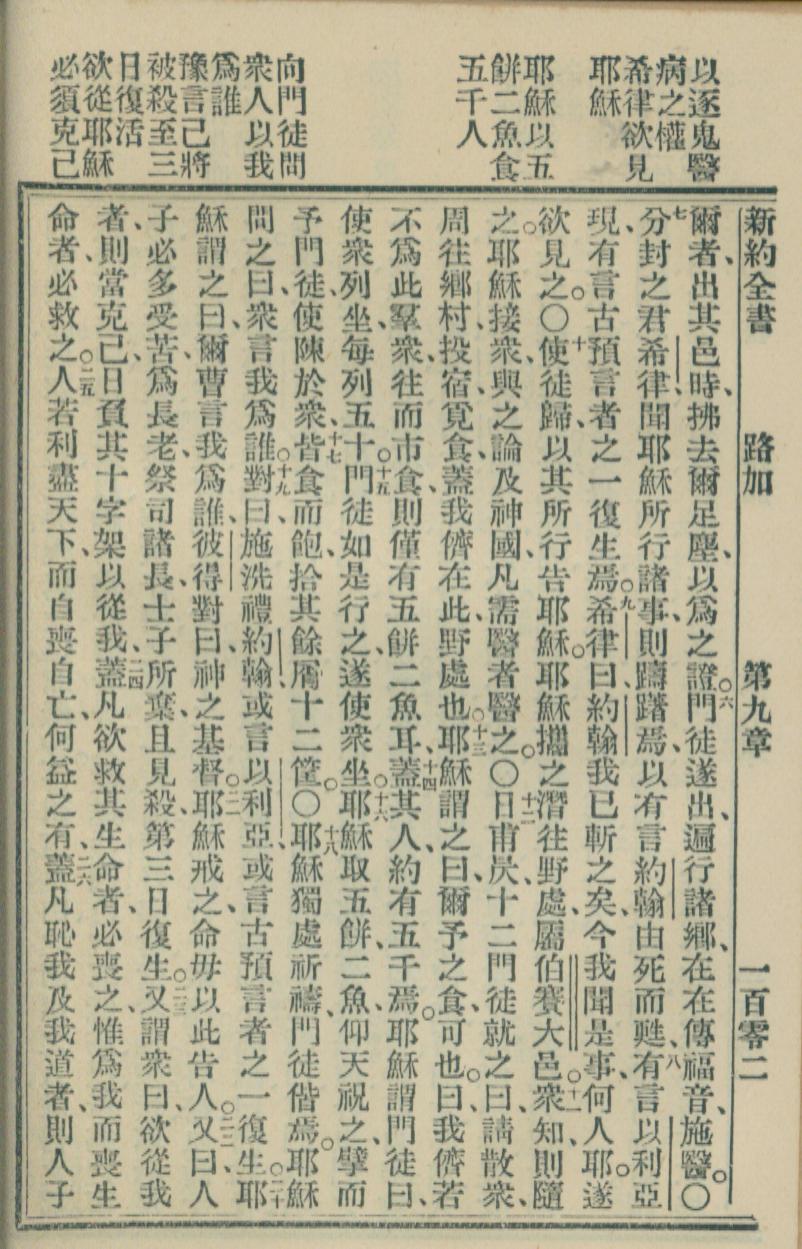 以逐鬼醫
病之權
希律欲見
耶穌
耶穌以五
餅二魚食
五千人
向門徒問
衆人以我
爲誰
豫言己將
被殺至三
日復活
欲從耶穌
必須克己
新約全書 路加 第九章 一百零二
爾者、出其邑時、拂去爾足塵、以爲之證。六門徒遂出、遍行諸鄉、在在傳福音、施醫。〇
七分封之君希律聞耶穌所行諸事、則躊躇焉、以有言約翰由死而甦、八有言以利亞
現、有言古預言者之一復生焉。九希律曰、約翰我已斬之矣、今我聞是事、何人耶。遂
欲見之。〇十使徒歸、以其所行告耶穌。耶穌攜之潛往野處、屬伯賽大邑。十一衆知、則隨
之。耶穌接衆、與之論及神國、凡需醫者醫之。〇十二日甫昃、十二門徒就之曰、請散衆、
周往鄉村、投宿覓食、蓋我儕在此野處也。十三耶穌謂之曰、爾予之食可也。曰、我儕若
不爲此羣衆往而市食、則僅有五餅二魚耳、十四蓋其人約有五千焉。耶穌謂門徒曰、
使衆列坐、每列五十。十五門徒如是行之、遂使衆坐。十六耶穌取五餅二魚、仰天祝之、擘而
予門徒、使陳於衆、十七皆食而飽、拾其餘屑十二筐。〇十八耶穌獨處祈禱、門徒偕焉。耶穌
問之曰、衆言我爲誰。十九對曰、施洗禮約翰、或言以利亞、或言古預言者之一復生。二十耶
穌謂之曰、爾曹言我爲誰、彼得對曰、神之基督。二一耶穌戒之、命毋以此告人。二二又曰、人
子必多受苦、爲長老祭司諸長士子所棄、且見殺、第三日復生。二三又謂衆曰、欲從我
者、則當克己、日負其十字架以從我、二四蓋凡欲救其生命者、必喪之、惟爲我而喪生
命者、必救之。二五人若利盡天下、而自喪自亡、何益之有、二六蓋凡恥我及我道者、則人子